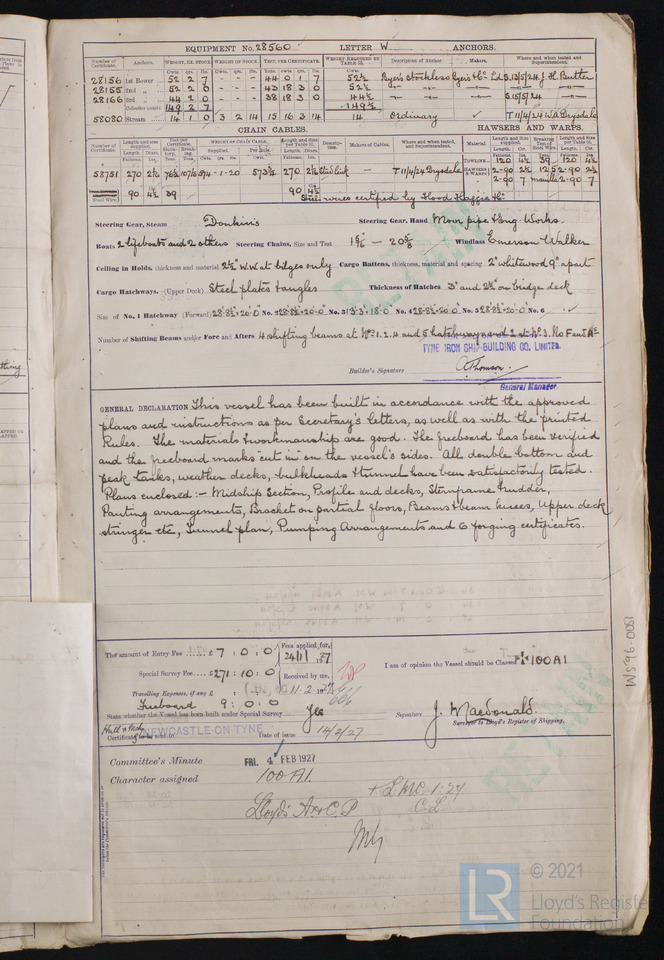 EQUIPMENT No. 28560 LETTER W ANCHORS.
Number of Certificate. Anchors. WEIGHT, EX. STOCK WEIGHT OF STOCK. TEST, PER CERTIFICATE. WEIGHT REQUIRED BY TABLE 22. Description of Anchor. Makers. Where and when tested and Superintendent.
Cwts. qrs. lbs. Cwts. qrs. lbs. Cwts.
28156 1st Bower 52 2 7 44 0 1 7 52½ Byers Stockless Byers & Co Ld S.13/5/24 J.H. Butter
28155 2nd „ 52 2 0 43 18 3 0 52½
28166 3rd „ 44 2 0 38 18 3 0 44½ S 15/5/24
Collective weight 149 2 7 149½
58080 Stream 14 1 0 3 2 14 15 16 3 14 14 Ordinary T 11/4/24 W.A. Drysdale
CHAIN CABLES. HAWSERS AND WARPS.
Number of Certificate. Length and size supplied. Test per Certificate. WEIGHT OF CHAIN CABLE. Length and size per Table 22. Description. Makers of Cables. Where and when tested, and Superintendent. Material. Length and Size supplied. Breaking Test of Steel Wire. Length and Size per Table 22.
52751 270 2⅛ 76½ 107/5 574-1-20 573½ 270 2⅛ Stud link T 11/4/24 Drysdale
TOWLINE 120 4½ 39 120 4½
HAWSERS & WARPS 2-90 2½ 12 5 2-90 2½
2-90 7 manilla 2-90 7
90 4½ 39 90 4½
Steel wires certified by Hood Haggie & Co
Steering Gear, Steam Donkin's Steering Gear, Hand Moor pipe & Eng. Works.
Boats 2 lifeboats and 2 others Steering Chains, Size and Test 1 5/16 — 20 5/8 Windlass Emerson Walker
Ceiling in Holds, thickness and material 2½" W.W at bilges only Cargo Battens, thickness, material and spacing 2" whitewood 9" apart
Cargo Hatchways. (Upper Deck) Steel plates & angles Thickness of Hatches 3" and 2½" on bridge deck
Size of No. 1 Hatchway (Forward) 28-8½ × 20-0 No. 2 28-8½ × 20-0 No. 3 13-3 × 18-0 No. 4 28-8½ × 20-0 No. 5 28-8½ × 20-0 No. 6
Number of Shifting Beams and/or Fore and Afters 4 shifting beams at Nos 1. 2. 4 and 5 hatchways and 2 at No 3. No F and As
TYNE IRON SHIP-BUILDING CO. LIMITED.
Builder's Signature A Thomson.
General Manager.
GENERAL DECLARATION This vessel has been built in accordance with the approved
plans and instructions as per Secretary's letters, as well as with the printed
Rules. The materials & workmanship are good. The freeboard has been verified
and the freeboard marks "cut in" on the vessel's sides. All double bottom and
peak tanks, weather decks, bulkheads & tunnel have been satisfactorily tested.
Plans enclosed :- Midship Section, Profile and decks, Sternframe & rudder,
Panting arrangements, Bracket on partial floors, Beams & beam knees, Upper deck
stringer etc, Tunnel plan, Pumping Arrangements and 6 forging certificates.
The amount of Entry Fee £ 7 : 0 : 0 Fees applied for,
24/1/1927
Special Survey Fee £271 : 10 : 0 Received by me, I am of opinion the Vessel should be Classed +100A1
Travelling Expenses, if any £ 11.2.1927
Freeboard 9 : 0 : 0
State whether the Vessel has been built under Special Survey Yes Signature J. Macdonald.
Surveyor to Lloyd's Register of Shipping.
Certificate to be sent to NEWCASTLE-ON-TYNE Date of issue 14/2/27
Committee's Minute FRI. 4 FEB 1927
Character assigned 100A1.
+ LMC 1.27
Lloyd's A & C.P C.L
1800-96 SW
RETAIN
RETAIN
LR
© 2021
Lloyd's Register
Foundation